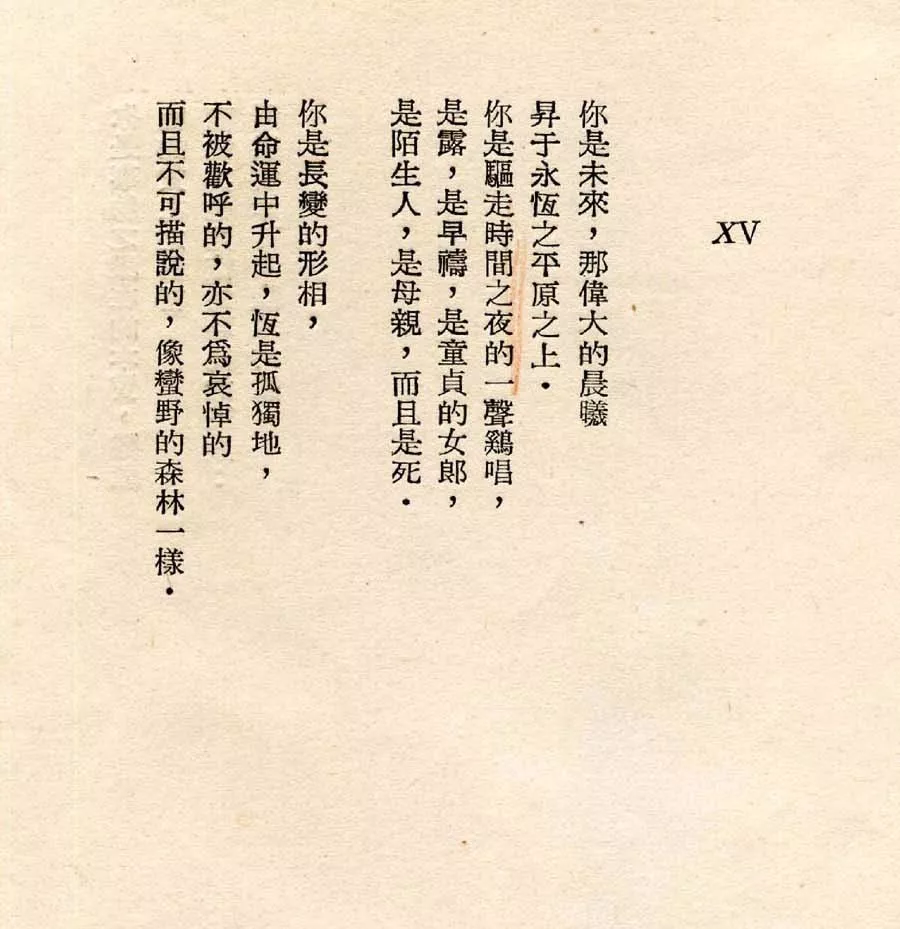 XV
你是未來，那偉大的晨曦
昇于永恆之平原之上．
你是驅走時間之夜的一聲鷄唱，
是露，是早禱，是童貞的女郎，
是陌生人，是母親，而且是死．
你是長變的形相，
由命運中升起，恆是孤獨地，
不被歡呼的，亦不爲哀悼的
而且不可描說的，像蠻野的森林一樣．